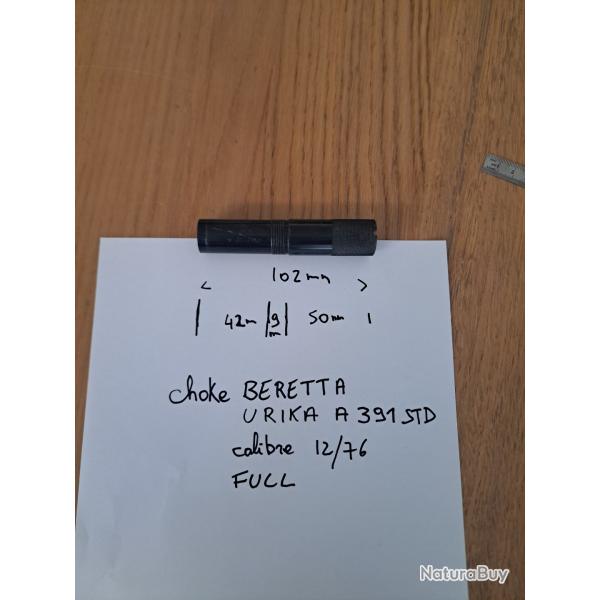 102mm
42m 9m 50mm
choke BERETTA
URIKA A391 STD
calibre 12/76
FULL
NaturaBuy